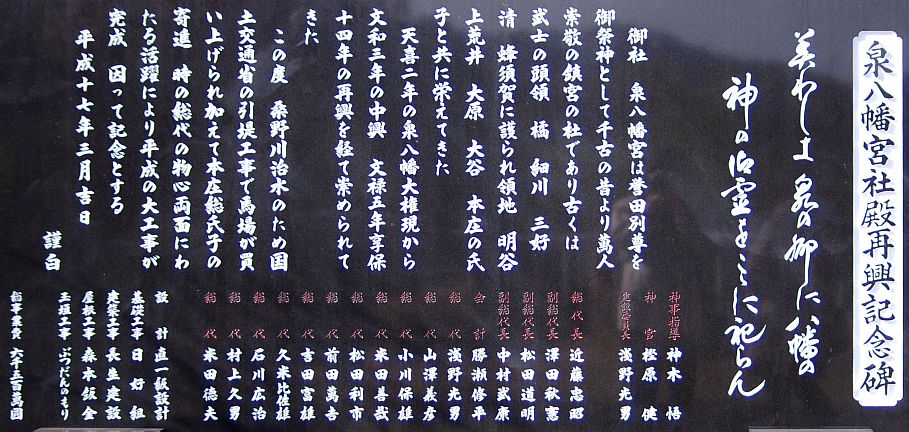 泉八幡宮社殿再興記念碑
美わしま泉の御に八幡の
神の御霊をここに祀らん
御社　泉八幡宮は誉田別尊を
御祭神として千古の昔より萬人
崇敬の鎮宮の杜であり古くは
武士の頭領　橘　細川　三好
清　蜂須賀に護られ領地　明谷
上荒井　大原　大谷　本庄の氏
子と共に栄えてきた
天喜二年の泉八幡大権現から
文和三年の中興　文禄五年享保
十四年の再興を経て崇められて
きた
この度　桑野川治水のため国
土交通省の引堤工事で馬場が買
い上げられ加えて本庄総氏子の
寄進　時の総代の物心両面にわ
たる活躍により平成の大工事が
完成　因って記念とする
平成十七年三月吉日
謹白
神事指導　神木　悟
神宮　樫原　健
浅野光男
総代長　近藤忠昭
副総代長　澤田秋憲
副総代長　松田道明
副総代長　中村武康
会計　勝瀬修平
総代　浅野光男
総代　山澤義彦
総代　小川保雄
総代　米田善哉
総代　松田利市
総代　前田萬吉
総代　吉田富雄
総代　久米比佐雄
総代　石川広治
総代　村上久男
総代　米田徳夫
設計　直一級設計
基礎工事　日好組
建築工事　長生建設
屋根工事　森本飯金
玉垣工事　ぶつだんのもり
総事業費　六千三百萬円